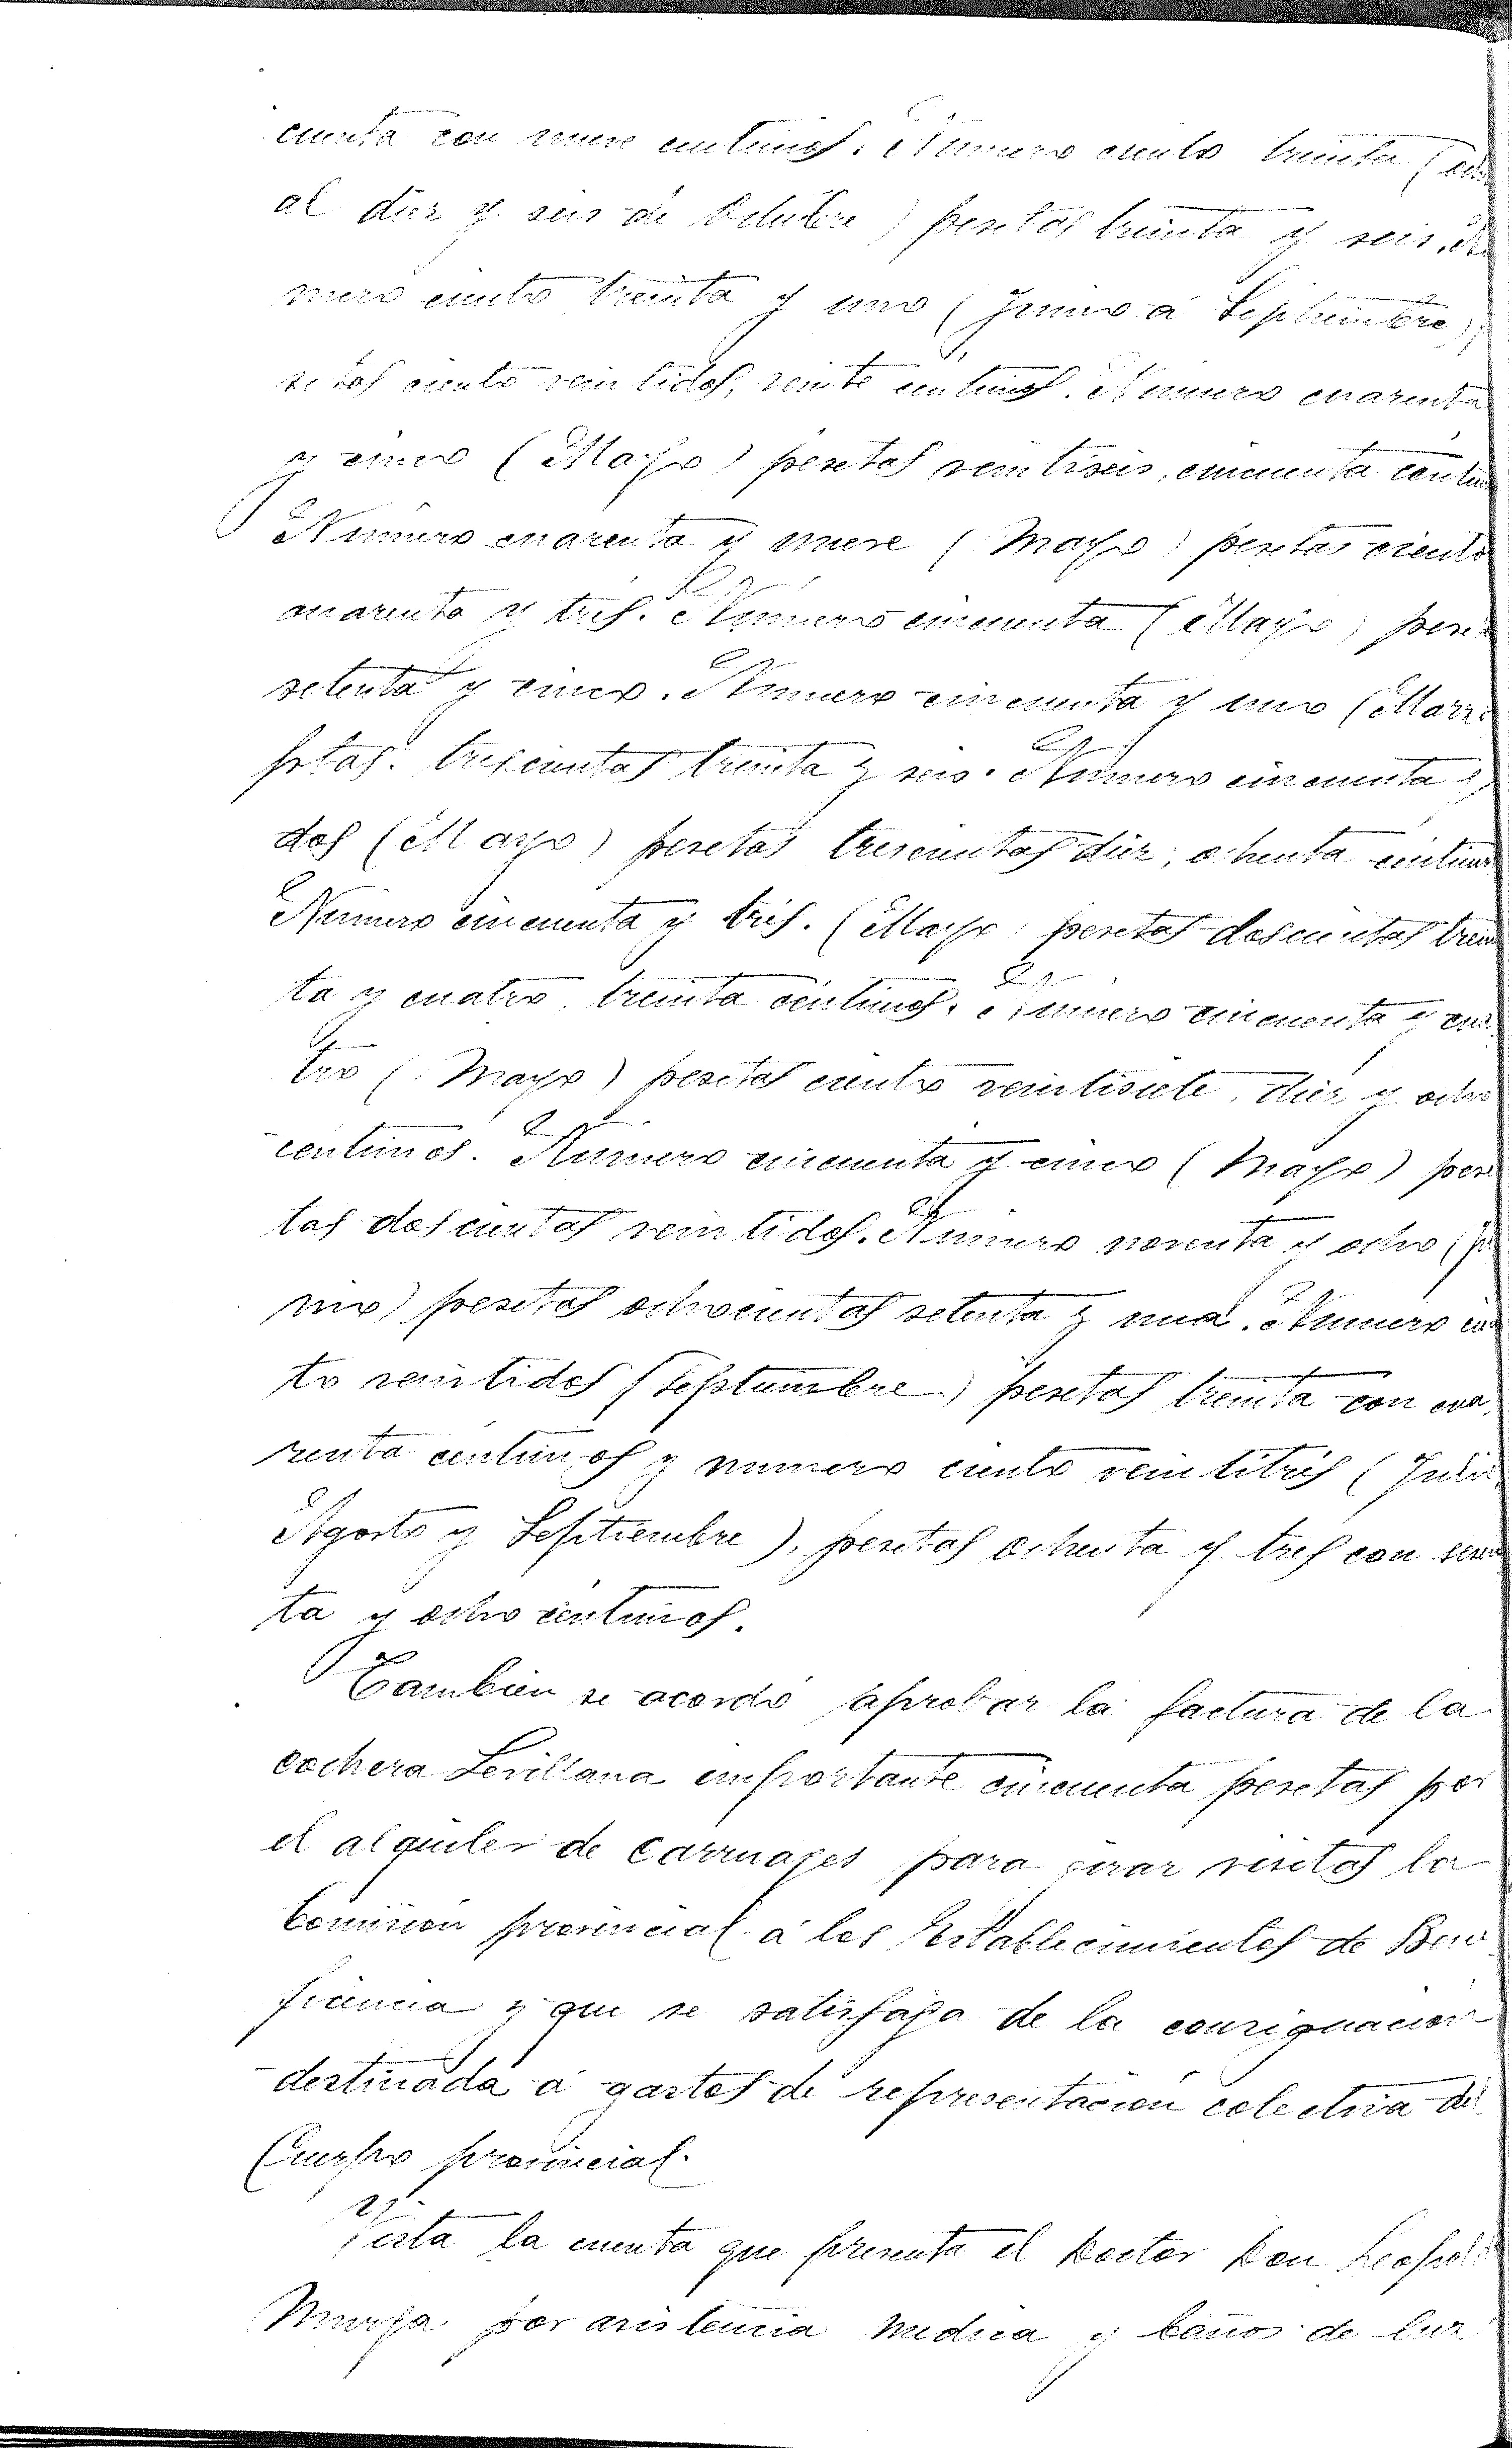 cuenta con nueve centimos. Número ciento treinta (ocho
al diez y seis de Octubre) pesetas treinta y seis. Nú
mero ciento treinta y uno (Junio á Septiembre)
setas ciento veintidos, veinte centimos. Número cuarenta
y cinco (Mayo) pesetas veintiseis, cincuenta centim
Número cuarenta y nueve (Mayo) pesetas ciento
cuarenta y tres. Número cincuenta (Mayo) pese
setenta y cinco. Número cincuenta y uno (Marzo
ptas. trescientas treinta y seis. Número cincuenta y
dos (Mayo) pesetas trescientas diez, ochenta centimos
Número cincuenta y tres. (Mayo) pesetas doscientas trein
ta y cuatro, treinta centimos. Número cincuenta y cua
tro (Mayo) pesetas ciento veintisiete, diez y ocho
centimos. Número cincuenta y cinco (Mayo) pese
tas doscientas veintidos. Número noventa y ocho (Ju
nio) pesetas ochocientas setenta y una. Número cien
to veintidos (Septiembre) pesetas treinta con cua
renta centimos y numero ciento veintitrés (Julio,
Agosto y Septiembre), pesetas ochenta y tres con sesen
ta y ocho centimos.
Tambien se acordó aprobar la factura de la
cochera Sevillana importante cincuenta pesetas por
el alquiler de carruajes para girar visitas la
Comision provincial á los Establecimientos de Bene
ficencia y que se satisfaga de la consignacion
destinada á gastos de representacion colectiva del
Cuerpo provincial.
Vista la cuenta que presenta el Doctor Don Leopoldo
Murga por asistencia medica y baños de luz